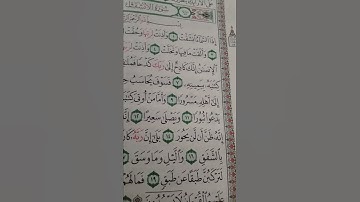 سُورَةُ الِانْشِقَاقِ
إِذَا السَّمَاءُ انْشَقَّتْ ۝١ وَأَذِنَتْ لِرَبِّهَا وَحُقَّتْ
وَأَلْقَتْ مَا فِيهَا وَتَخَلَّتْ ۝٤ وَأَذِنَتْ
الْإِنْسَانُ إِنَّكَ كَادِحٌ إِلَىٰ رَبِّكَ كَدْحًا
كِتَابَهُ بِيَمِينِهِ ۝٧ فَسَوْفَ يُحَاسَبُ
إِلَىٰ أَهْلِهِ مَسْرُورًا ۝٩ وَأَمَّا مَنْ أُوتِيَ
يَدْعُوا ثُبُورًا ۝١١ وَيَصْلَىٰ سَعِيرًا ۝١٢
إِنَّهُ ظَنَّ أَنْ لَنْ يَحُورَ ۝١٤ بَلَىٰ إِنَّ رَبَّهُ
بِالشَّفَقِ ۝١٦ وَاللَّيْلِ وَمَا وَسَقَ ۝١٧
لَتَرْكَبُنَّ طَبَقًا عَنْ طَبَقٍ ۝١٩ فَمَا لَهُمْ
عَلَيْهِمُ الْقُرْآنُ لَا يَسْجُدُونَ